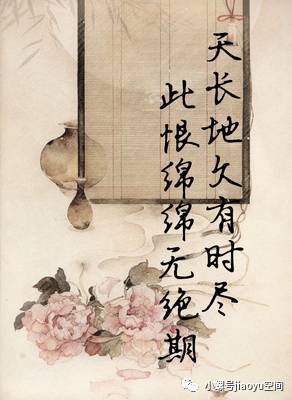 天长地久有时尽
此恨绵绵无绝期
小螺号jiaoyu空间